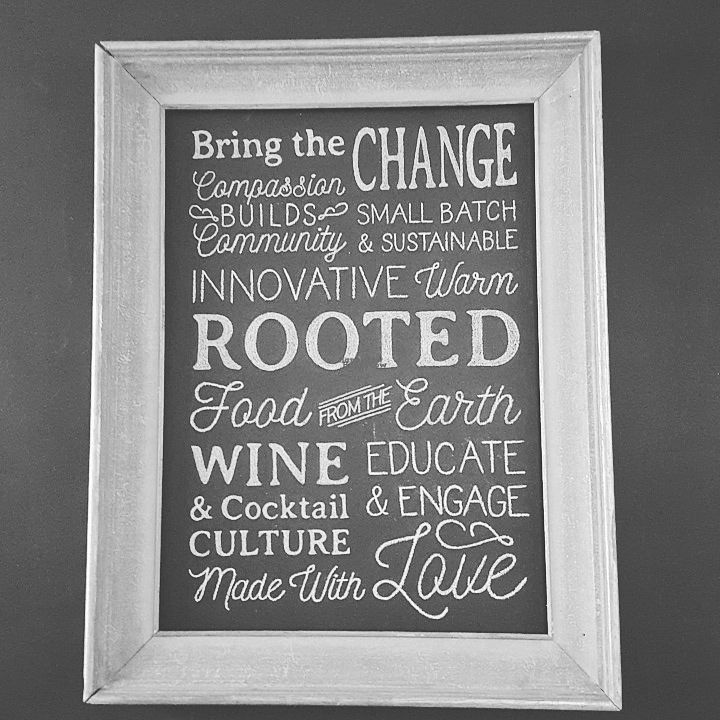 Bring the CHANGE
Compassion
BUILDS
Community
SMALL BATCH
& SUSTAINABLE
INNOVATIVE Warm
ROOTED
Food FROM THE Earth
WINE
& Cocktail
CULTURE
EDUCATE
& ENGAGE
Made With Love